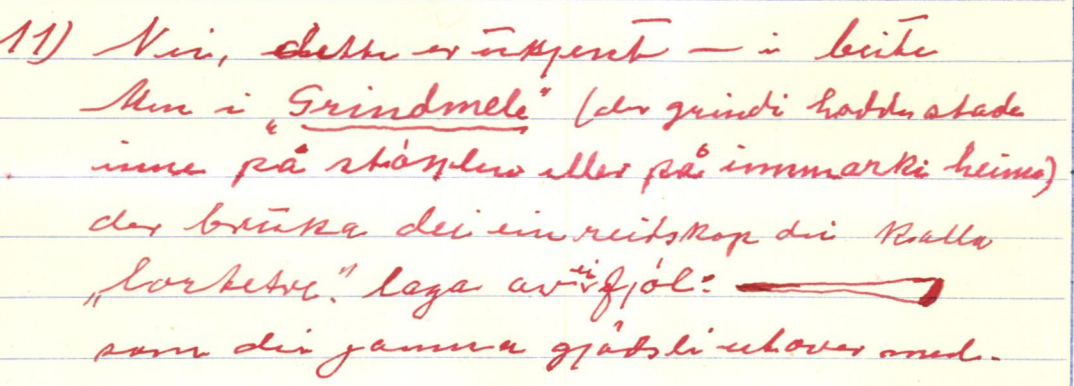 11) Nei, dette er ukjent – i beite
Men i „Grindmele" (der grindi hadde stade
inne på stöylen eller på innmarki heime)
der bruka dei ein reidskap dei kalla
„lorketre" laga av ei fjøl:
som dei jamna gjødsli utover med.